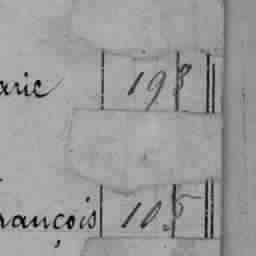 arie 198
rançois 105